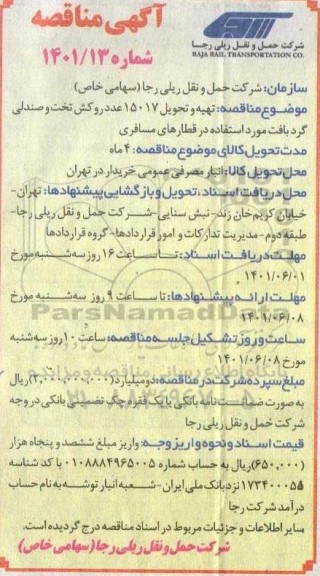 آگهی مناقصه
شماره ۱۴۰۱/۱۳
شرکت حمل و نقل ریلی رجا
RAJA RAIL TRANSPORTATION CO.
سازمان: شرکت حمل و نقل ریلی رجا (سهامی خاص)
موضوع مناقصه: تهیه و تحویل ۱۵۰۱۷ عدد روکش تخت و صندلی
گرد بافت مورد استفاده در قطارهای مسافری
مدت تحویل کالای موضوع مناقصه: ۴ ماه
محل تحویل کالا: انبار مصرفی عمومی خریدار در تهران
محل دریافت اسناد، تحویل و بازگشایی پیشنهادها: تهران-
خیابان کریم خان زند- نبش سنایی- شرکت حمل و نقل ریلی رجا-
طبقه دوم- مدیریت تدارکات و امور قراردادها- گروه قراردادها
مهلت دریافت اسناد: تا ساعت ۱۶ روز سه‌شنبه مورخ
۱۴۰۱/۰۶/۰۱
مهلت ارائه پیشنهادها: تا ساعت ۹ روز سه‌شنبه مورخ
۱۴۰۱/۰۶/۰۸
ساعت و روز تشکیل جلسه مناقصه: ساعت ۱۰ روز سه‌شنبه
مورخ ۱۴۰۱/۰۶/۰۸
مبلغ سپرده شرکت در مناقصه: دو میلیارد (۲,۰۰۰,۰۰۰,۰۰۰) ریال
به صورت ضمانت نامه بانکی یا یک فقره چک تضمینی بانکی در وجه
شرکت حمل و نقل ریلی رجا
قیمت اسناد و نحوه واریز وجه: واریز مبلغ ششصد و پنجاه هزار
(۶۵۰,۰۰۰) ریال به حساب شماره ۰۱۰۸۸۸۴۹۶۵۰۰۵ با کد شناسه
۱۷۳۴۰۰۰۵۵ نزد بانک ملی ایران- شعبه انبار توشه به نام حساب
درآمد شرکت رجا
سایر اطلاعات و جزئیات مربوط در اسناد مناقصه درج گردیده است.
شرکت حمل و نقل ریلی رجا (سهامی خاص)